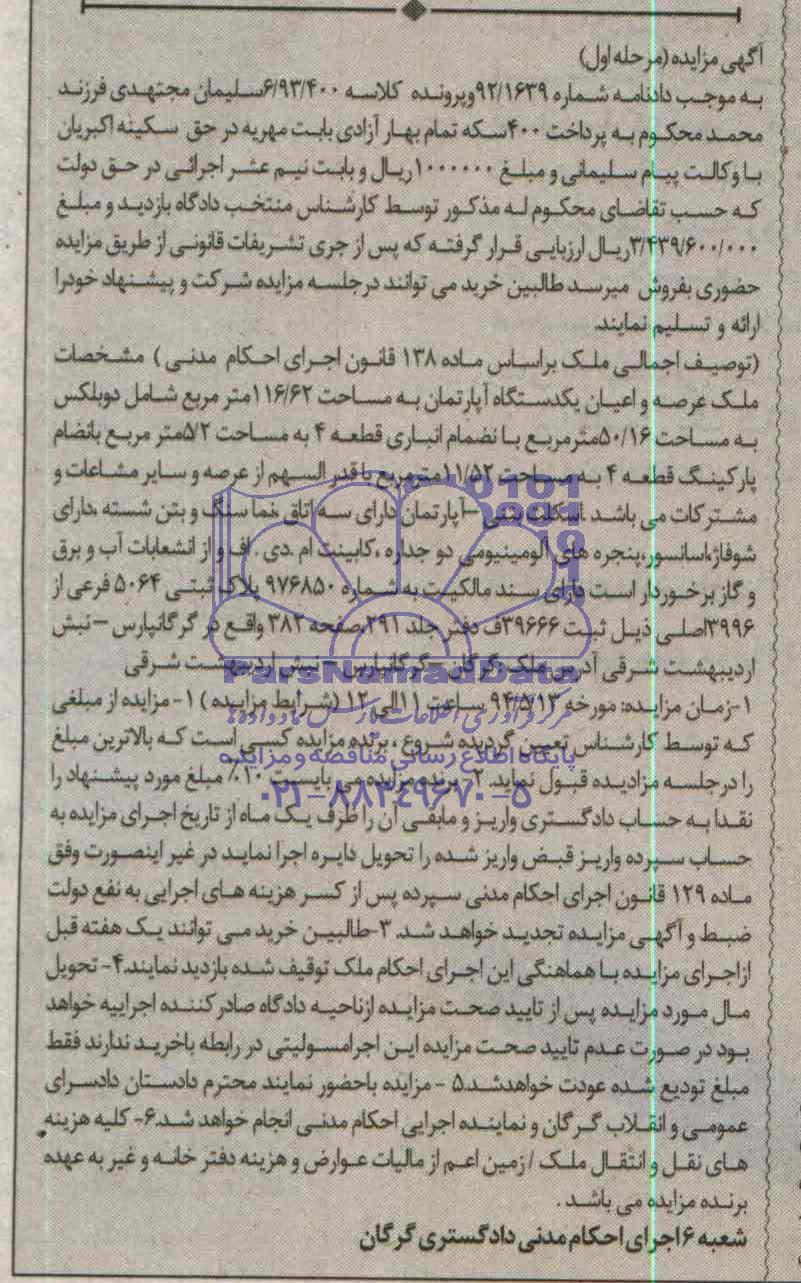 آگهی مزایده (مرحله اول)
به موجب دادنامه شماره ۹۲/۱۶۳۹وپرونده کلاسه ۶/۹۳/۴۰۰سلیمان مجتهدی فرزند
محمد محکوم به پرداخت ۴۰۰سکه تمام بهار آزادی بابت مهریه در حق سکینه اکبریان
با وکالت پیام سلیمانی و مبلغ ۱۰۰۰۰۰۰ریال و بابت نیم عشر اجرائی در حق دولت
که حسب تقاضای محکوم له مذکور توسط کارشناس منتخب دادگاه بازدید و مبلغ
۳/۴۳۹/۶۰۰/۰۰۰ریال ارزیابی قرار گرفته که پس از جری تشریفات قانونی از طریق مزایده
حضوری بفروش میرسد طالبین خرید می توانند درجلسه مزایده شرکت و پیشنهاد خودرا
ارائه و تسلیم نمایند.
(توصیف اجمالی ملک براساس ماده ۱۳۸ قانون اجرای احکام مدنی ) مشخصات
ملک عرصه و اعیان یکدستگاه آپارتمان به مساحت ۱۱۶/۶۲متر مربع شامل دوبلکس
به مساحت ۵۰/۱۶مترمربع با نضمام انباری قطعه ۴ به مساحت ۵/۲متر مربع بانضام
پارکینگ قطعه ۴ به مساحت ۱۱/۵۲مترمربع با قدر السهم از عرصه و سایر مشاعات و
مشترکات می باشد .اسکلت بتنی –آپارتمان دارای سه اتاق ،نما سنگ و بتن شسته ،دارای
شوفاژ،اسانسور،پنجره های آلومینیومی دو جداره ،کابینت ام .دی . اف و از انشعابات آب و برق
و گاز برخوردار است دارای سند مالکیت به شماره ۹۷۶۸۵۰ پلاک ثبتی ۵۰۶۴ فرعی از
۳۹۹۶اصلی ذیل ثبت ۳۹۶۶۶ف دفتر جلد ۲۹۱،صفحه ۳۸۲ واقع در گرگانپارس –نبش
اردیبهشت شرقی آدرس ملک :گرگان –گرگانپارس – نبش اردیبهشت شرقی
ParsNamadData
۱-زمان مزایده: مورخه ۹۴/۵/۱۳ ساعت ۱۱الی ۱۲ (شرایط مزایده ) ۱- مزایده از مبلغی
که توسط کارشناس تعیین گردیده شروع ، برنده مزایده کسی است که بالاترین مبلغ
پایگاه اطلاع رسانی مناقصه و مزایده
را درجلسه مزادیده قبول نماید. ۲- برنده مزایده می بایست ۱۰٪ مبلغ مورد پیشنهاد را
۰۲۱-۸۸۳۴۹۶۷۰-۵
نقدا به حساب دادگستری واریز و مابقی آن را ظرف یک ماه از تاریخ اجرای مزایده به
حساب سپرده واریز قبض واریز شده را تحویل دایره اجرا نماید در غیر اینصورت وفق
ماده ۱۲۹ قانون اجرای احکام مدنی سپرده پس از کسر هزینه های اجرایی به نفع دولت
ضبط و آگهی مزایده تجدید خواهد شد. ۳-طالبین خرید می توانند یک هفته قبل
ازاجرای مزایده با هماهنگی این اجرای احکام ملک توقیف شده بازدید نمایند.۴- تحویل
مال مورد مزایده پس از تایید صحت مزایده ازناحیه دادگاه صادرکننده اجراییه خواهد
بود در صورت عدم تایید صحت مزایده این اجرامسولیتی در رابطه باخرید ندارند فقط
مبلغ تودیع شده عودت خواهدشد.۵ - مزایده باحضور نمایند محترم دادستان دادسرای
عمومی و انقلاب گرگان و نماینده اجرایی احکام مدنی انجام خواهد شد.۶- کلیه هزینه
های نقل و انتقال ملک /زمین اعم از مالیات عوارض و هزینه دفتر خانه و غیر به عهده
برنده مزایده می باشد .
شعبه ۶ اجرای احکام مدنی دادگستری گرگان